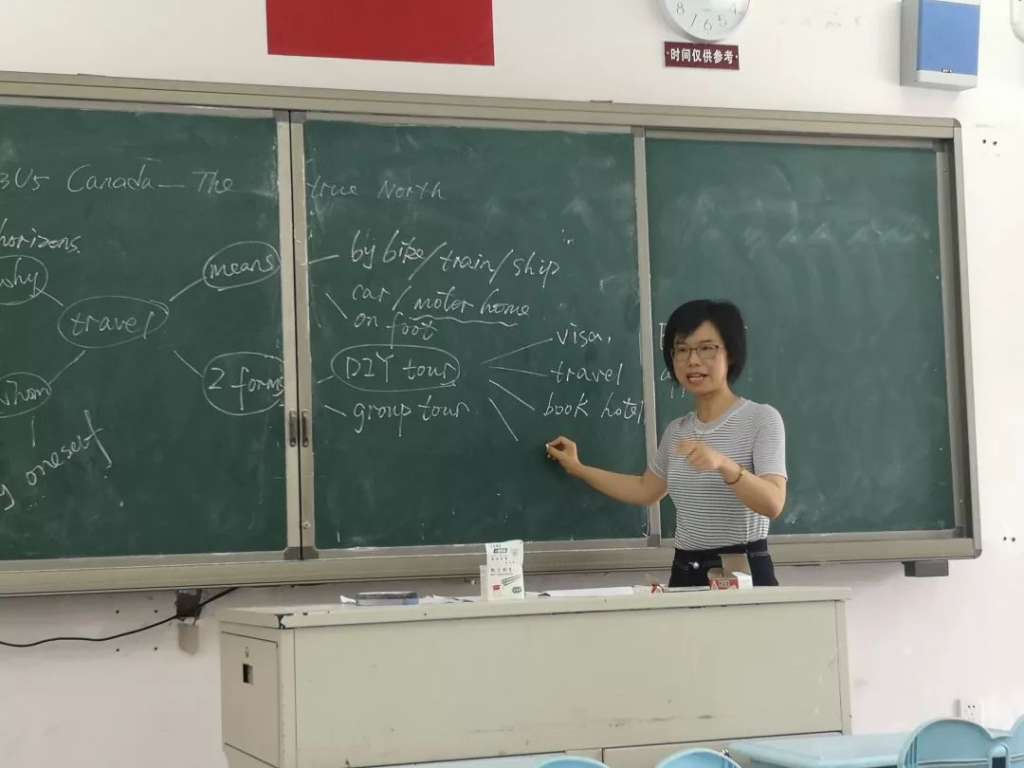 8 7 6 5 4
·时间仅供参考·
3U5 Canada — The True North
horizons
why
means
by bike/train/ship
car/motor home
on foot
travel
visa,
2 forms
DIY tour
travel
whom
group tour
book hotel
oneself